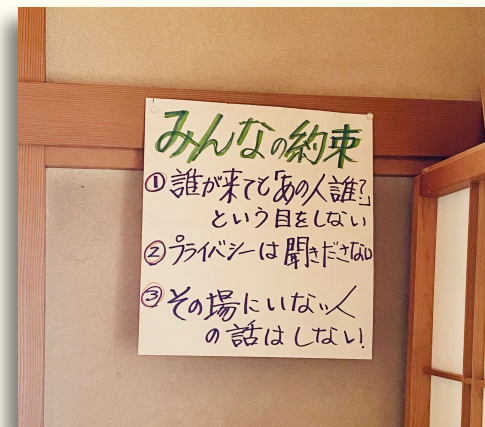 みんなの約束
①誰が来ても「あの人誰?」
という目をしない
②プライバシーは聞きださない
③その場にいない人
の話はしない!